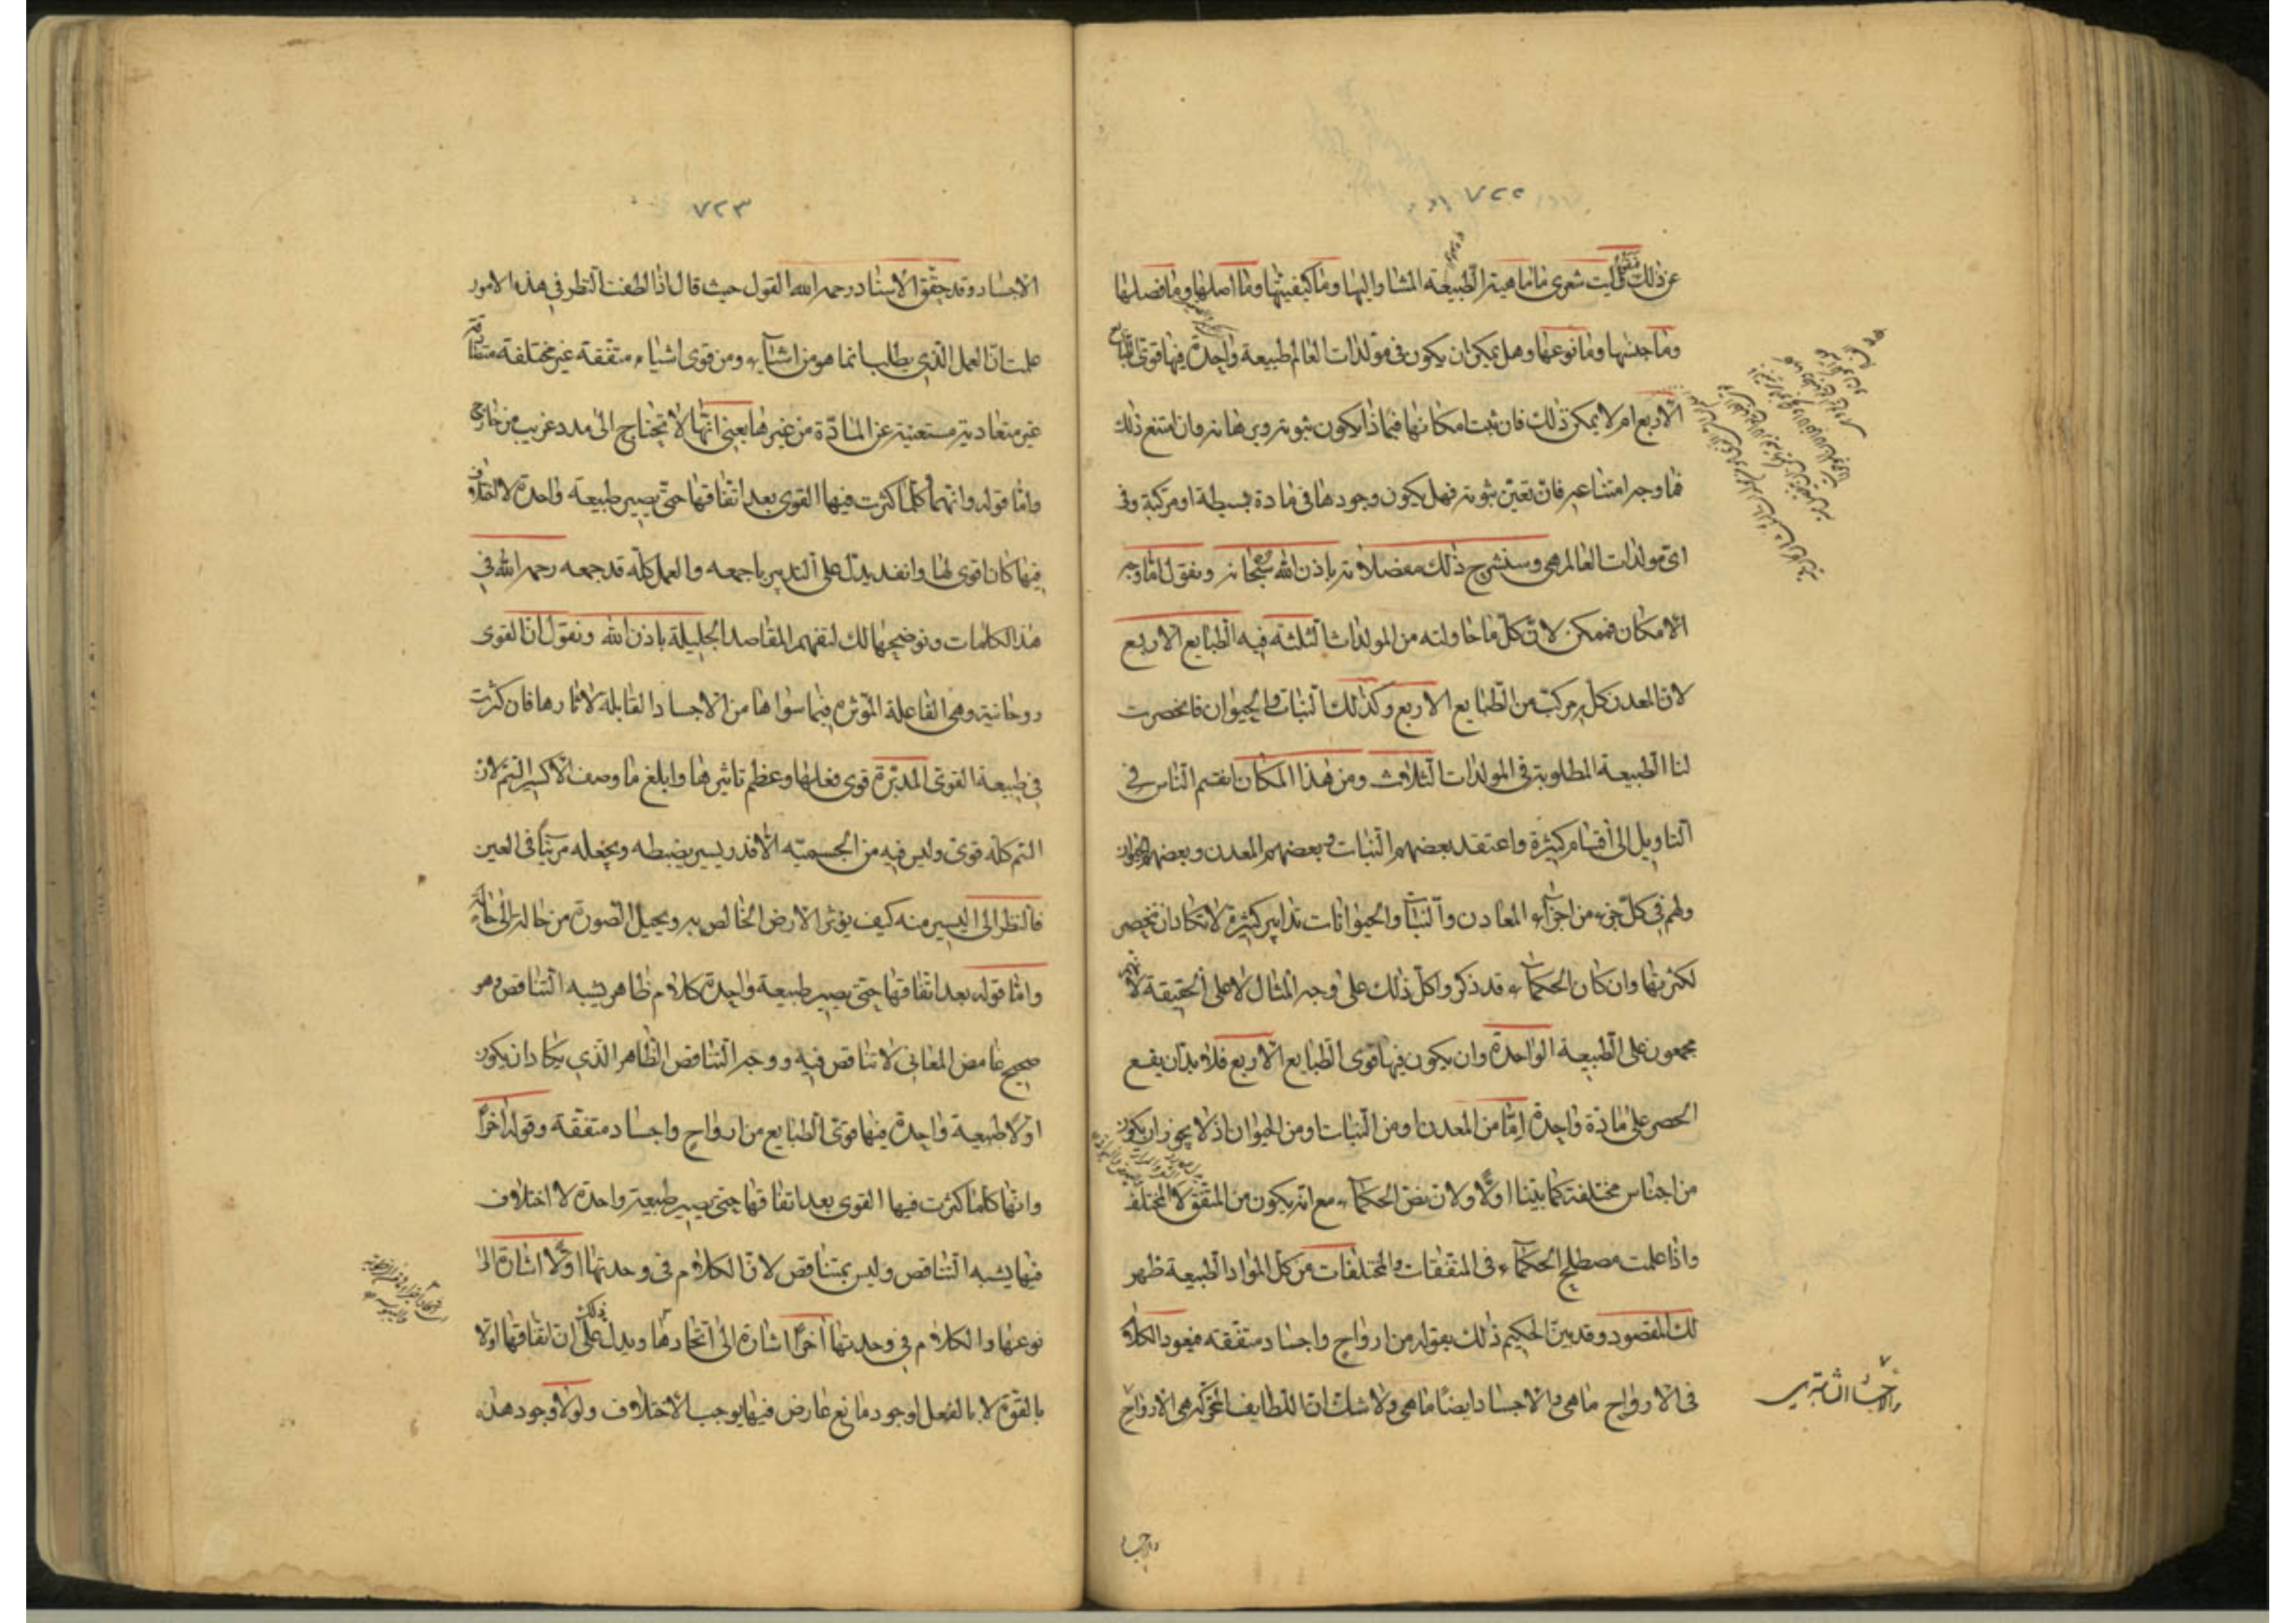 ٧٢٢
عن ذلك فنقول ليت شعرى ما ماهية الطبيعة المشار اليها وما كيفيتها وما اصلها وما فصلها
وما جنسها وما نوعها وهل يمكن ان يكون فى مولدات العالم طبيعة واحدة فيها قوى الطبايع
الاربع ام لا يمكن ذلك فان ثبت امكانها فبماذا يكون ثبوته وبرهانه وان امتنع ذلك
فما وجه امتناعه فان تعين ثبوته فهل يكون وجودها فى مادة بسيطة او مركبة وفى
اى مولدات العالم هى وسنشرح ذلك مفصلا باذن الله سبحانه ونقول اما وجه
الامكان فممكن لان كل ما حاولته من المولدات الثلثة فيه الطبايع الاربع
لان المعدن كله مركب من الطبايع الاربع وكذلك النبات والحيوان فانحصرت
لنا الطبيعة المطلوبة فى المولدات الثلاث ومن هذا المكان انقسم الناس فى
التاويل الى اقسام كثيرة واعتقد بعضهم النبات وبعضهم المعدن وبعضهم الحيوان
ولهم فى كل جزء من اجزاء المعادن والنبات والحيوانات تدابير كثيرة لا تكاد ان تنحصر
لكثرتها وان كان الحكماء قد ذكروا كل ذلك على وجه المثال لا على الحقيقة لانهم
مجمعون على الطبيعة الواحدة وان يكون فيها قوى الطبايع الاربع فلا بد ان يقع
الحصر على مادة واحدة اما من المعدن او من النبات او من الحيوان اذ لا يجوز ان يكون
من اجناس مختلفة كما بينا اولا ولان نص الحكماء مع انه يكون من المتفق لا المختلف
واذا علمت مصطلح الحكماء فى المتفقات والمختلفات من كل المواد الطبيعة ظهر
لك المقصود وقد بين الحكيم ذلك بقوله من ارواح واجساد متفقة فيعود الكلام
فى الارواح ما هى والاجساد ايضا ما هى ولا شك ان اللطايف المحركة هى الارواح
والاجساد
٧٢٣
الاجساد وقد حقق الاستاد رحمه الله القول حيث قال اذا لطفت النظر فى هذه الامور
علمت ان العمل الذى يطلب انما هو من اشياء ومن قوى اشياء متفقة غير مختلفة متقاربة
غير متعادية مستغنية عن المادة من غيرها يعنى انها لا تحتاج الى مدد غريب من خارج
واما قوله وانها كلما كثرت فيها القوى بعد اتفاقها حتى يصير طبيعة واحدة لا اختلاف
فيها كان اقوى لها وانفذ يدل على التدبير باجمعه والعمل كله قد جمعه رحمه الله فى
هذا الكلمات ونوضحها لك لتفهم المقاصد الجليلة باذن الله ونقول ان القوى
روحانية وهى الفاعلة المؤثرة فيما سواها من الاجساد القابلة لاثارها فان كثرت
فى طبيعة القوى المدبرة قوى فعلها وعظم تاثيرها وابلغ ما وصف الاكسير السم لان
السم كله قوى وليس فيه من الجسمية الا قدر يسير يضبطه ويجعله مرئيا فى العين
فالنظر الى اليسير منه كيف يؤثر الارض الخالص به ويحيل الصورة من حالة الى حالة
واما قوله بعد اتفاقها حتى يصير طبيعة واحدة كلام ظاهر يشبه التناقض وهو
صحيح غامض المعانى لا تناقض فيه ووجه التناقض الظاهر الذى يكاد ان يكون
اولا طبيعة واحدة فيها قوى الطبايع من ارواح واجساد متفقة وقوله اخرا
وانها كلما كثرت فيها القوى بعد اتفاقها حتى يصير طبيعة واحدة لا اختلاف
فيها يشبه التناقض وليس بمتناقض لان الكلام فى وحدتها اولا اشارة الى
نوعها والكلام فى وحدتها اخرا اشارة الى اتحادها ويدل ذلك على ان اتفاقها اولا
بالقوة لا بالفعل لوجود مانع عارض فيها يوجب الاختلاف ولولا وجود هذه